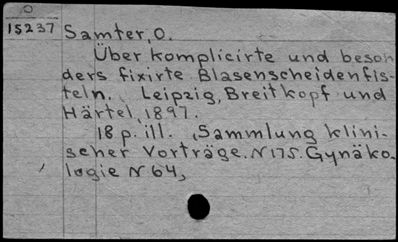 O
15237 Samter, O.
Über komplicirte und beson
ders fixirte Blasenscheidenfis-
teln. Leipzig, Breitkopf und
Härtel, 1897.
18 p. ill. (Sammlung klini-
scher Vorträge. N 175. Gynäko-
logie N 64)